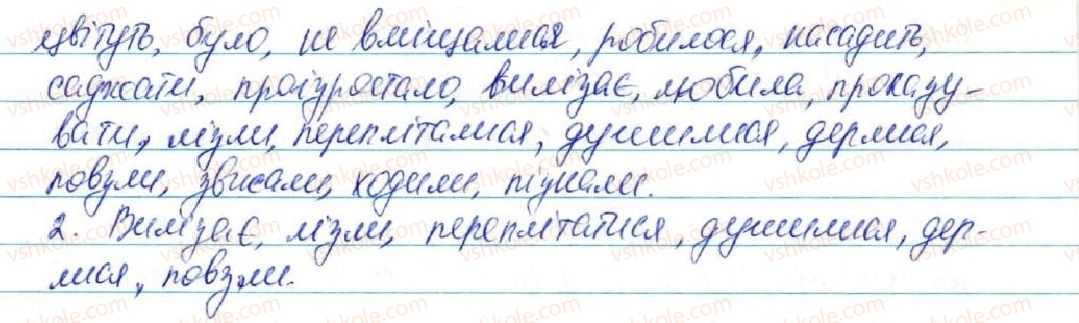 цвітуть, було, не вміщалися, робилося, насадить,
саджати, проізростало, вилізає, любила, проказу-
вати, лізли, перепліталися, душилися, дерлися,
повзли, звисали, ходили, пізнали.
2. Вилізає, лізли, переплітатися, душилися, дер-
лися, повзли.